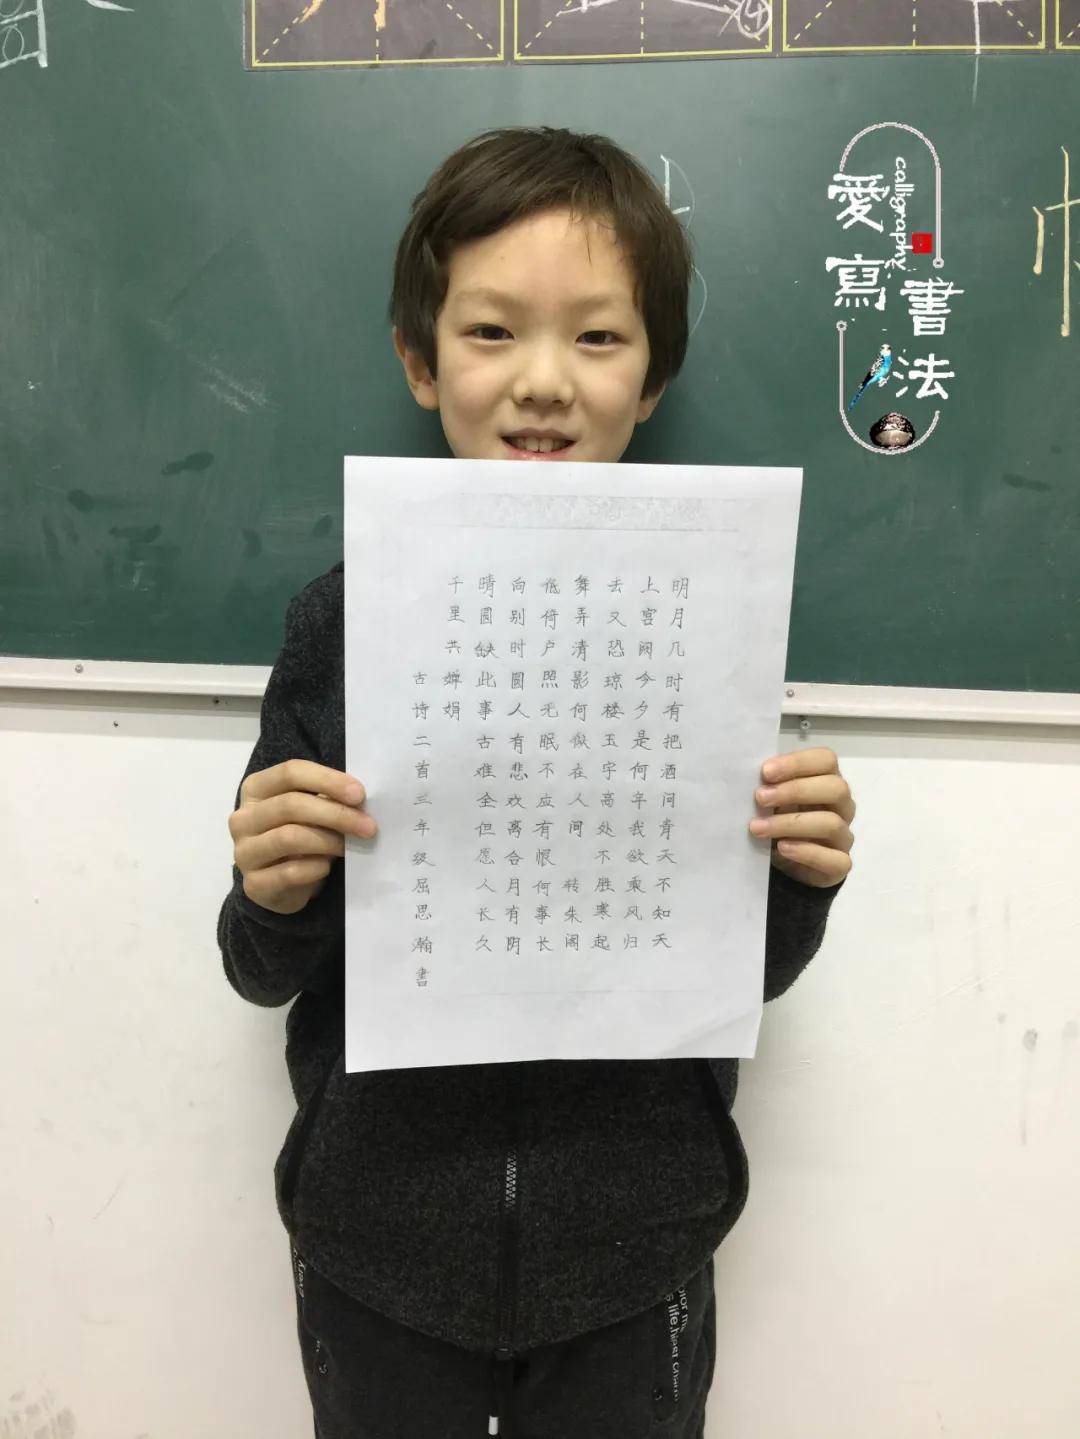 明月几时有把酒问青天不知天
上宫阙今夕是何年我欲乘风归
去又恐琼楼玉宇高处不胜寒起
舞弄清影何似在人间 转朱阁
低倚户照无眠不应有恨何事长
向别时圆人有悲欢离合月有阴
晴圆缺此事古难全但愿人长久
千里共婵娟
古诗二首三年级屈思瀚書
愛寫書法
calligraphy